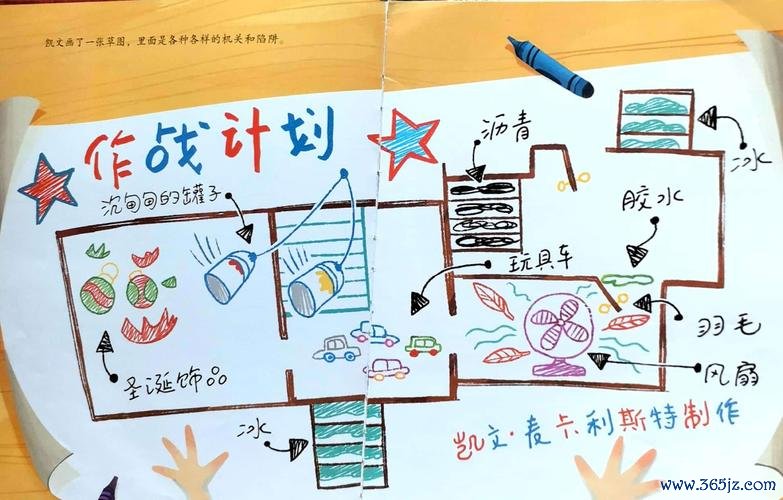 凯文画了一张草图，里面是各种各样的机关和陷阱。
作战计划
沥青
冰
沉甸甸的罐子
胶水
玩具车
羽毛
圣诞饰品
风扇
冰
凯文·麦卡利斯特制作
www.365jz.com